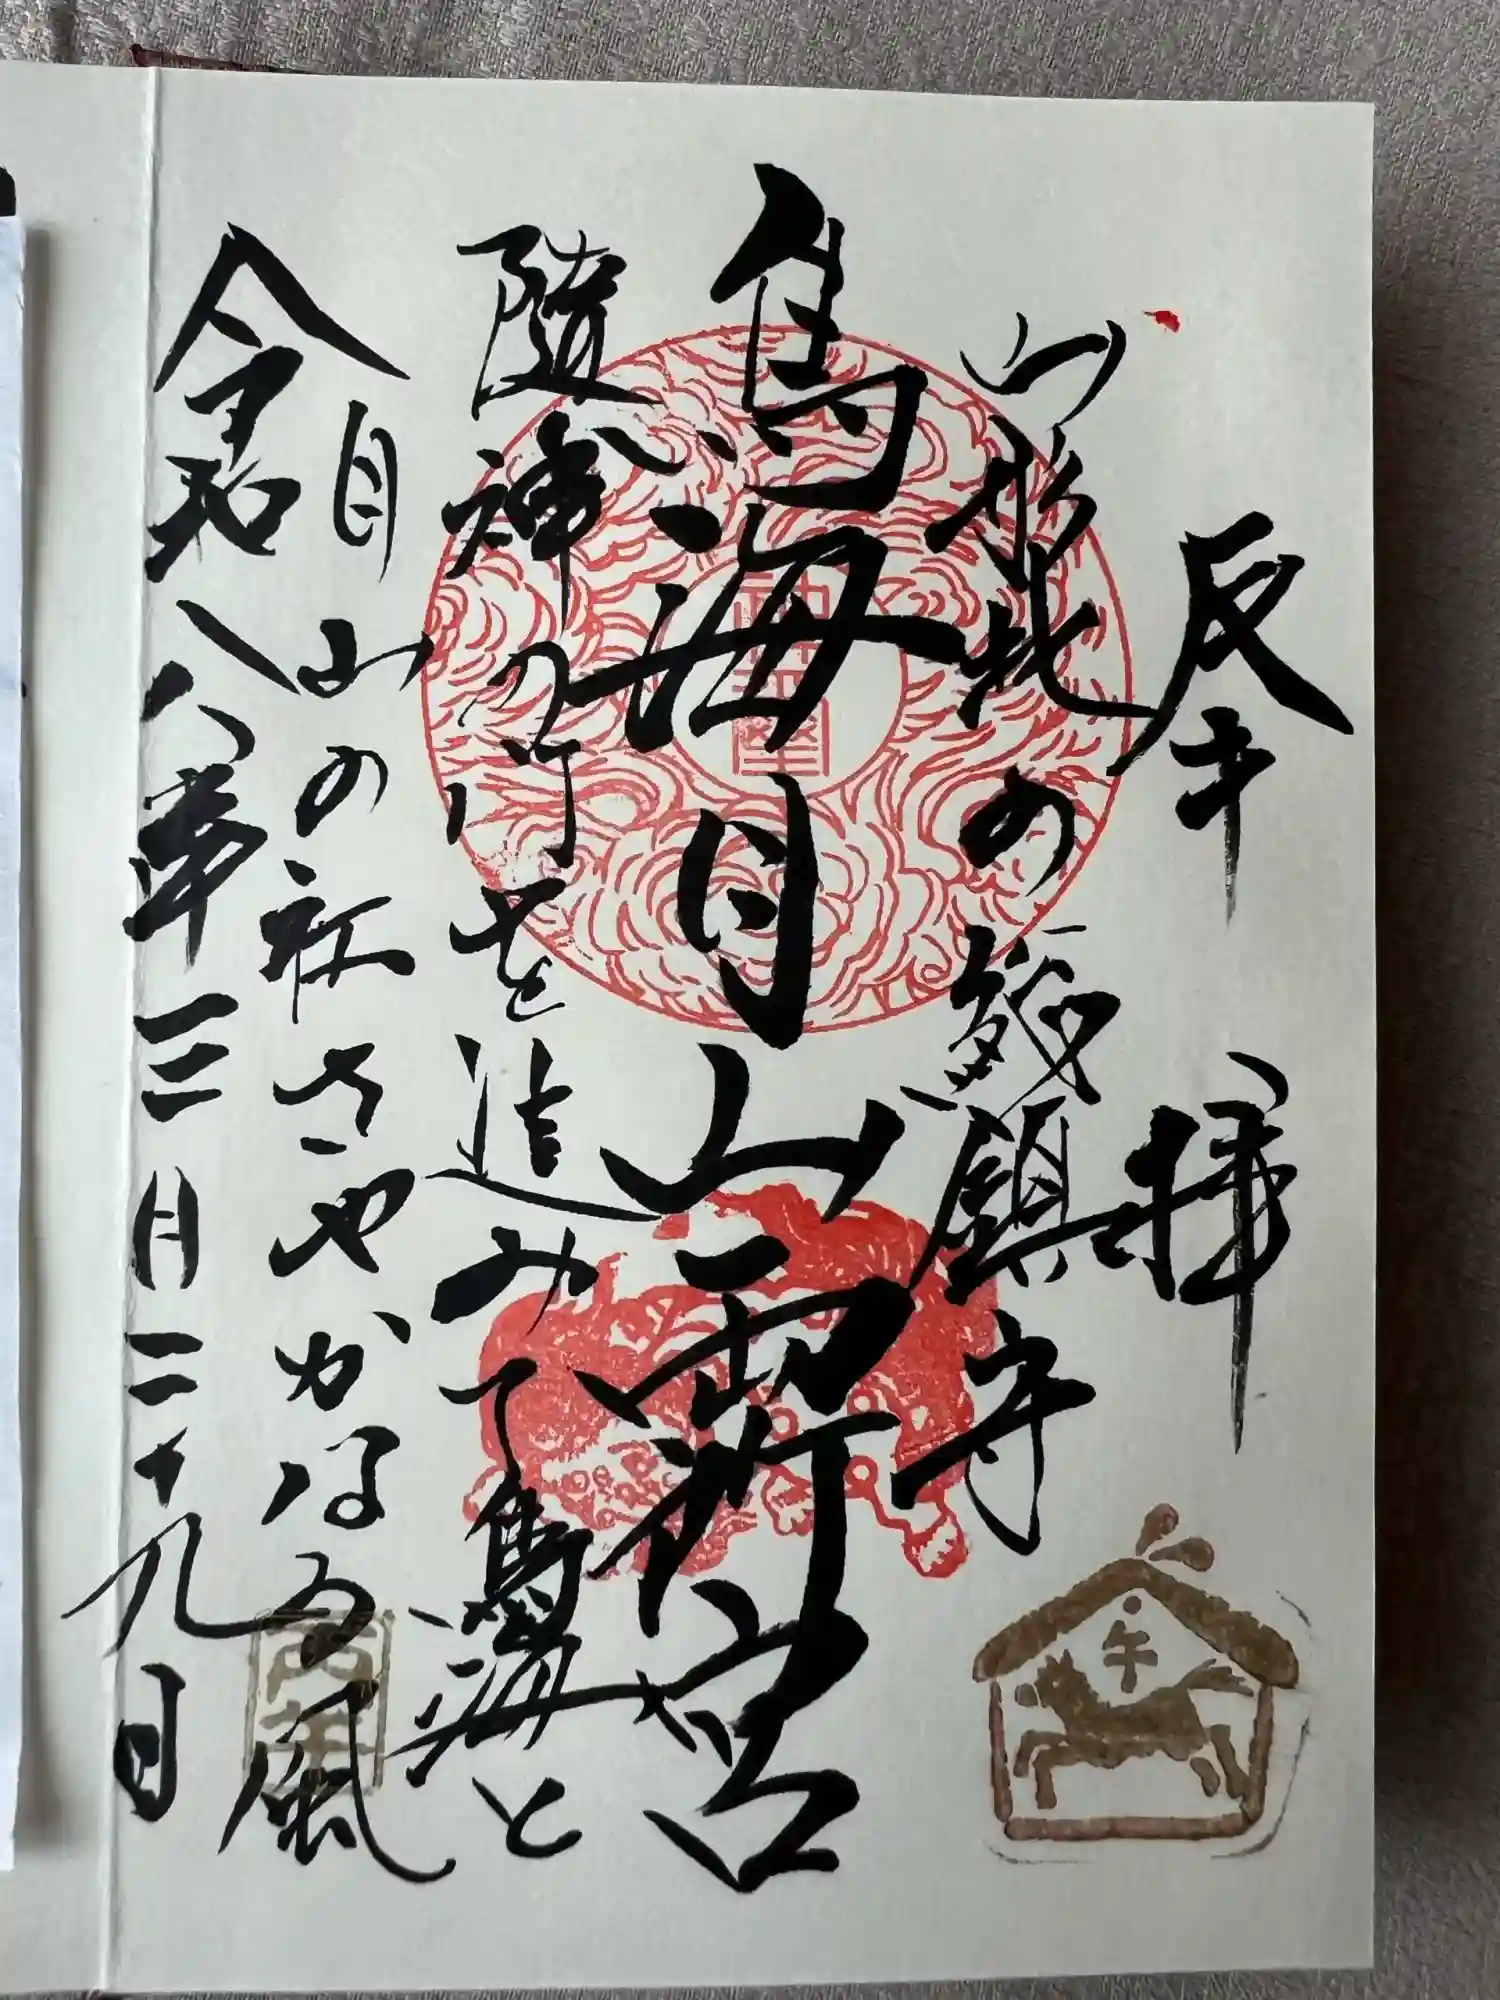 奉拝
山形北の総鎮守
鳥海月山両所宮
随神の行を進みて鳥海と
月山の社さやかなる風
令和八年三月二十九日
午
丙午